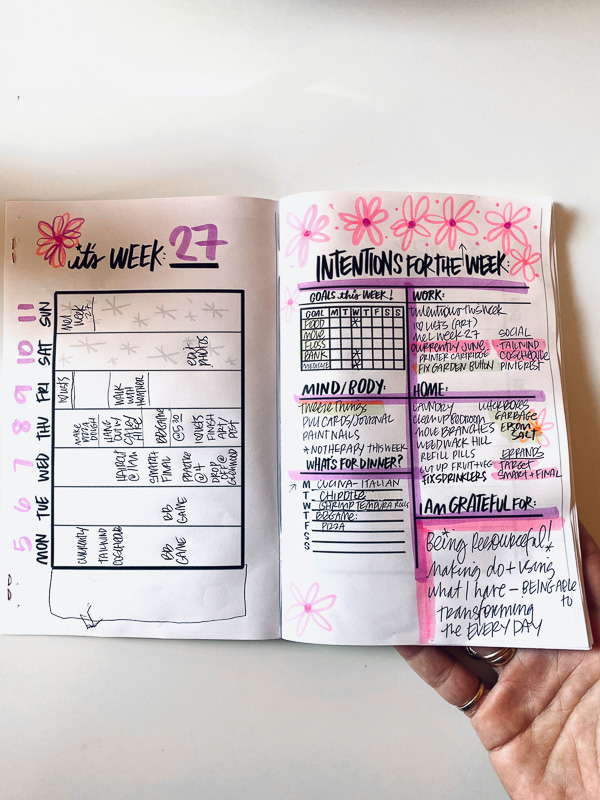 it's WEEK: 27
11 SUN
MEL
WEEK
27
10 SAT
EDIT
PHOTOS
9 FRI
10 LISTS
WALK
WITH
HEATHER
8 THU
MAKE
PIZZA
DOUGH
HANG
OUT W/
BBGAME
@5:30
10 LISTS
FINISH
ART/
POST
7 WED
HAIRCUT
@
SMART+
FINAL
PRACTICE
@4
DROP
6 TUE
BB
GAME
5 MON
CURRENTLY
TAILWIND
COSCHEDULE
BB
GAME
INTENTIONS FOR THE WEEK:
GOALS this WEEK!
GOAL M T W T F S S
FOOD
MOVE
FLOSS
BANK
MEDITATE
MIND/BODY:
TWEEZE THINGS
PAINT NAILS
*NO THERAPY THIS WEEK
WHAT'S FOR DINNER?
M CUCINA - ITALIAN
T CHIPOTLE
W SHRIMP TEMPURA ROLLS
T BBGAME:
F PIZZA
S
S
WORK:
intentions this week
10 LISTS (ART)
mel week 27
CURRENTLY JUNE
PRINTER CARTRIDGE
FIX GARDEN BUTTON
SOCIAL
TAILWIND
COSCHEDULE
PINTEREST
HOME:
LAUNDRY
clean up bedroom
MOVE BRANCHES
WEED WACK HILL
REFILL PILLS
CUT UP FRUIT+VEG
FIX SPRINKLERS
LITTERBOXES
GARBAGE
EPSOM
SALT
ERRANDS
TARGET
SMART+FINAL
I AM GRATEFUL FOR:
Being Resourceful!
Making do + using
what I have - BEING ABLE
TO
Transforming
the EVERY DAY